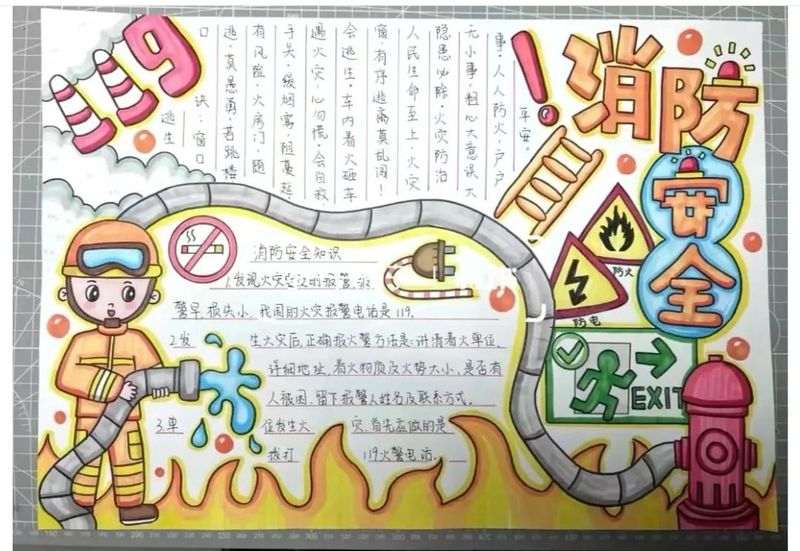 119
消防
安全
逃生
口诀:窗口
逃,莫愚勇,若跳楼
有风险,火房门,随
手关,缓烟雾,阻蔓延,
遇火灾,心勿慌,会自救
会逃生。车内着火砸车
窗,有序逃离莫乱闯!
人民生命至上,火灾
隐患必除,火灾防治
无小事,粗心大意误大
事,人人防火,户户
平安。
消防安全知识
1.发现火灾 的报警,
警早,损失小,我国的火灾报警电话是119.
2.发生火后,正确报火警方法是:讲清着火单位,
详细地址,着火物质及火势大小,是否有
人被困,留下报警人姓名及联系方式。
3.单位发生火灾,首先应做的是
拨打119火警电话.
防火
防电
EXIT